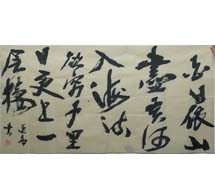 白日依山
盡黄河
入海流
欲穷千里
目更上一
层楼